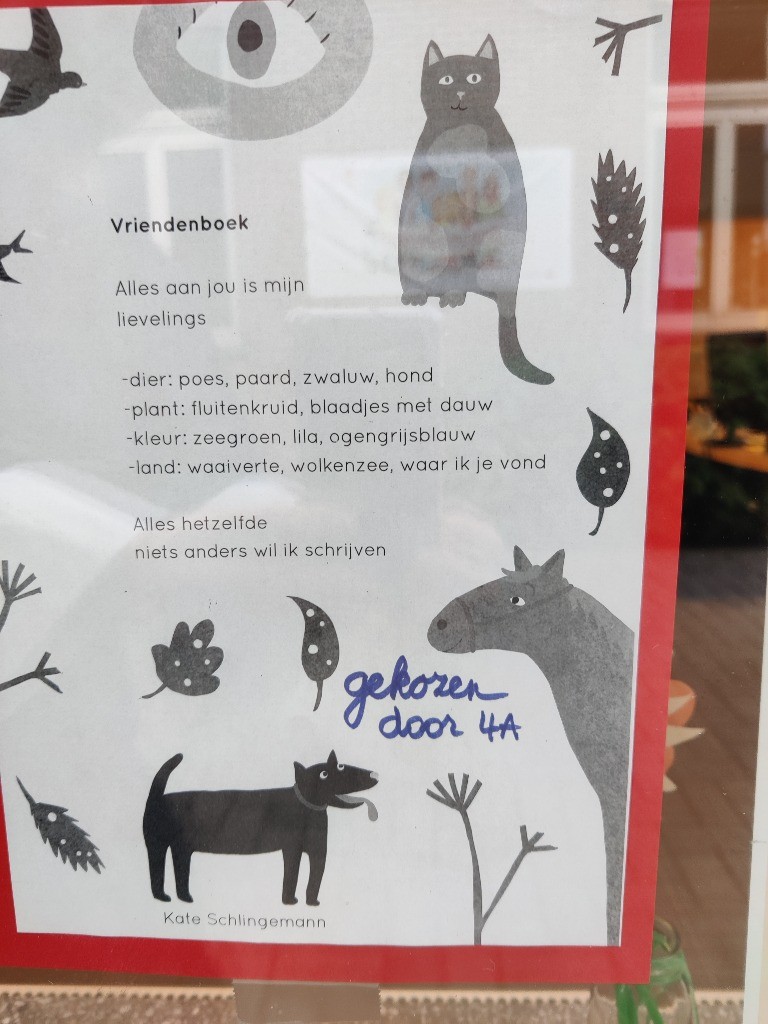 Vriendenboek
Alles aan jou is mijn
lievelings
-dier: poes, paard, zwaluw, hond
-plant: fluitenkruid, blaadjes met dauw
-kleur: zeegroen, lila, ogengrijsblauw
-land: waaiverte, wolkenzee, waar ik je vond
Alles hetzelfde
niets anders wil ik schrijven
gekozen
door 4A
Kate Schlingemann